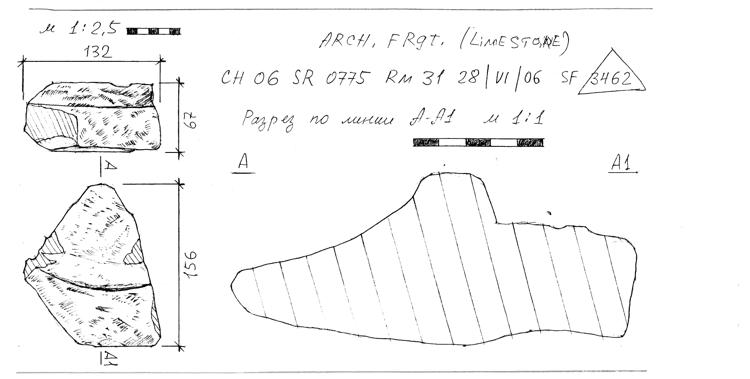 м 1:2,5
132
67
A
156
A1
ARCH. FRgt. (LIMESTONE)
CH 06 SR 0775 RM 31 28/VI/06 SF 3462
Разрез по линии А-А1 м 1:1
A
A1